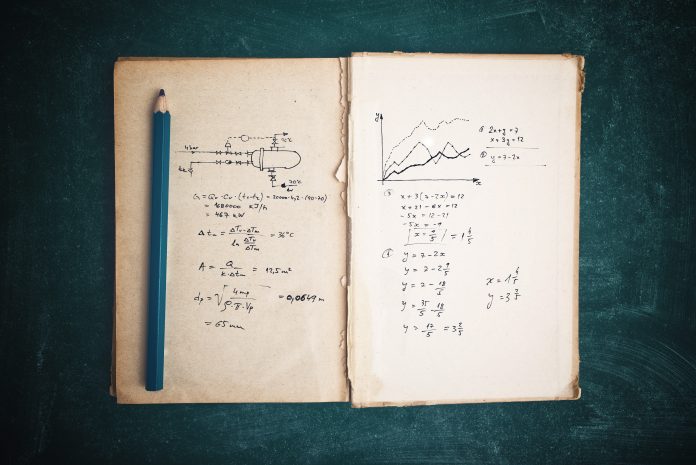 4 bar
90°C
70°C
Q = Qv · Cv · (t₁-t₂) = 20000·4,2·(90-70)
= 1680000 kJ/h
= 467 kW
Δtm = ΔTv - ΔTm / ln ΔTv / ΔTm = 36°C
A = Q / k·Δtm = 12,5 m²
dp = √ 4mp / ρ·π·Vp = 0,0649 m
= 65 mm
y
x
① 2x+y=7
x+3y=12
② y=7-2x
③ x+3(7-2x)=12
x+21-6x=12
-5x=12-21
-5x=-9
x=9/5 = 1 4/5
④ y=7-2x
y=7-2 9/5
y=7-18/5
y=35/5-18/5
y=17/5=3 2/5
x=1 4/5
y=3 2/5